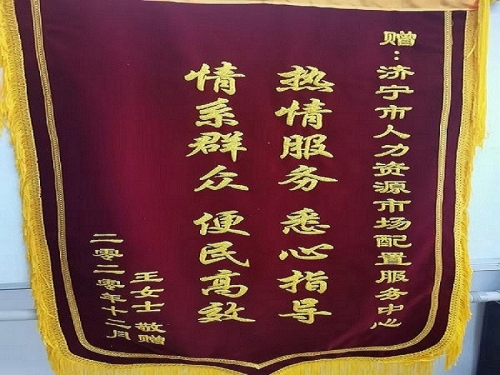 赠：济宁市人力资源市场配置服务中心
热情服务 悉心指导
情系群众 便民高效
王女士 敬赠
二零二零年十二月